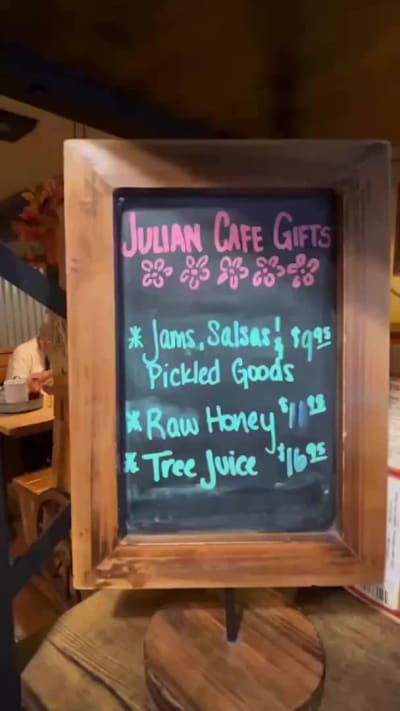 JULIAN CAFE GIFTS
* Jams, Salsas & $9.95
Pickled Goods
* Raw Honey
* Tree Juice $16.95